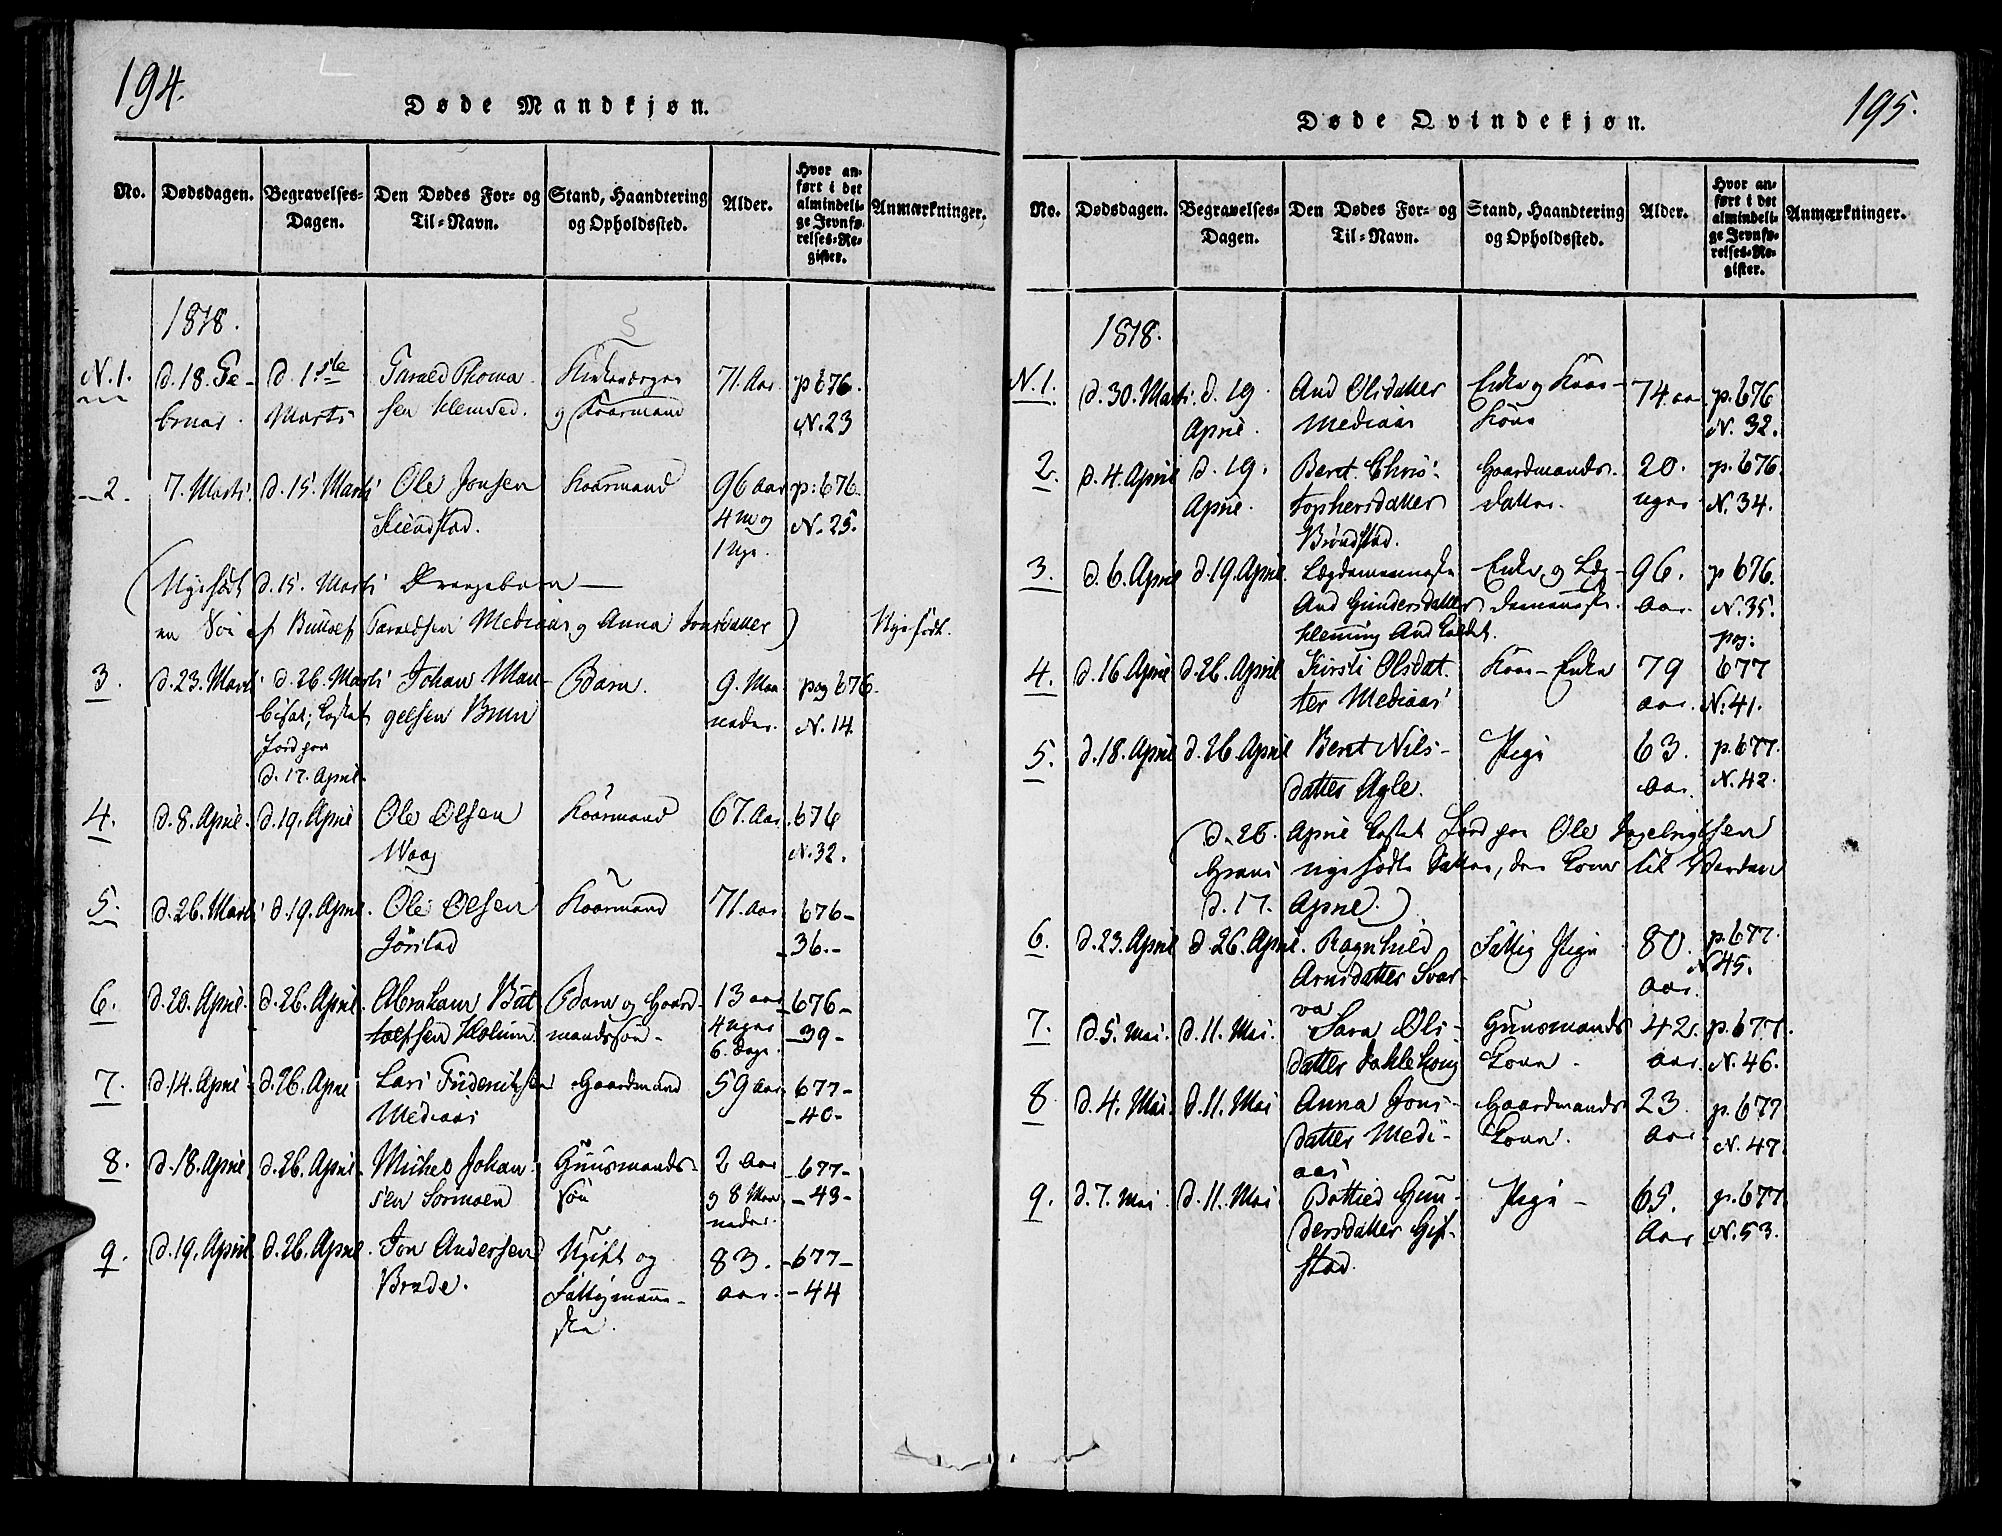 194.
Døde Mandkjøn.
No.
Dødsdagen.
Begravelses-
Dagen.
Den Dødes For- og
Til-Navn.
Stand, Haandtering
og Opholdssted.
Alder.
Hvor an-
ført i det
almindeli-
ge Jevnfø-
relses-Re-
gister.
Anmærkninger.
1818.
N. 1.
d. 18. Fe-
bruar.
d. 1ste
Marti
Tarald Thoma
sen Klemved.
Kirkeværger
og Kaarmand
71. Aar
p 676.
N. 23
2.
7. Marti
d. 15. Marti
Ole Jonsen
Kiendstad.
Kaarmand
96 aar
4 m og
1 Uge.
p: 676.
N. 25.
(Nyefødt d. 15. Marti Drængebarn —
en Søn af Buttolf Taraldsen Mediaas og Anna Jonsdatter)
Nyefødt.
3.
d. 23. Marti
d. 26. Marti
bisat; kastet
Jord paa
d. 17. April
Johan Man-
gelsen Brun
Barn.
9. Maa
neder.
pag 676.
N. 14
4.
d. 8. April.
d. 19. April
Ole Olsen
Waag
Kaarmand
67. Aar
676
N. 32.
5.
d. 26. Marti
d. 19. April.
Ole Olsen
Jørstad
Kaarmand
71. Aar
676-
-36.-
6.
d. 20. April.
d. 26. April.
Abraham But
tolfsen Holum
Barn og Gaard-
mandssøn-
13 aar
4 uger
6. Dage.
676-
-39-
7.
d. 14. April
d. 26. April
Lars Friderichsen
Mediaas
Gaardmand
59 aar
677-
-40-
8.
d. 18. April
d. 26. April.
Michel Johan-
sen Sormoen
Huusmands-
søn
2 Aar
og 8 Maa
neder.
-677-
-43-
9.
d. 19. April
d. 26. April.
Jon Andersen
Brede.
Ugift og
Fattigman-
83.
aar.
-677-
-44
195.
Døde Qvindekjøn.
No.
Dødsdagen.
Begravelses-
Dagen.
Den Dødes For- og
Til-Navn.
Stand, Haandtering
og Opholdssted.
Alder.
Hvor an-
ført i det
almindeli-
ge Jevnfø-
relses-Re-
gister.
Anmærkninger.
1818.
N. 1.
d. 30. Marti.
d. 19
April.
And Olsdatter
Mediaas
Enke og Kaar-
Kone
74 aar
p. 676
N. 32.
2.
d. 4. April
d. 19.
April.
Beret Chris-
tophersdatter
Brøndstad.
Gaardmands-
datter.
20.
uger
p. 676.
N. 34.
3.
d. 6. April
d. 19. April.
And Gundersdatter
Enke og Læg-
96.
aar.
p 676.
N. 35.
pag:
4.
d. 16. April
d. 26. April
Kirsti Olsdat
ter Mediaas
Kaar-Enke
79
aar.
677
N. 41.
5.
d. 18. April
d. 26. April
Beret Nils-
datter Agle.
Pige
63.
aar.
p. 677.
N. 42.
(d. 26. April kastet Jord paa Ole Ingebrigtsen
Grans nyefødte Datter, der kom til Verden
d. 17. April.)
6.
d. 23. April
d. 26. April.
Ragnhild
Arnsdatter Svar-
va
Fattig Pige
80.
aar.
p. 677.
N 45.
7.
d. 5. Mai.
d. 11. Mai.
Sara Ols-
datter
Huusmands
Kone.
42.
aar.
p. 677.
N. 46.
8
d. 4. Mai.
d. 11. Mai
Anna Jons-
datter Medi-
aas
Gaardmands
Kone.
23.
aar
p. 677
N. 47
9.
d. 7. Mai.
d. 11. Mai.
Botlied Gun-
dersdatter Gif-
stad.
Pige-
65.
Aar
p. 677.
N. 53.